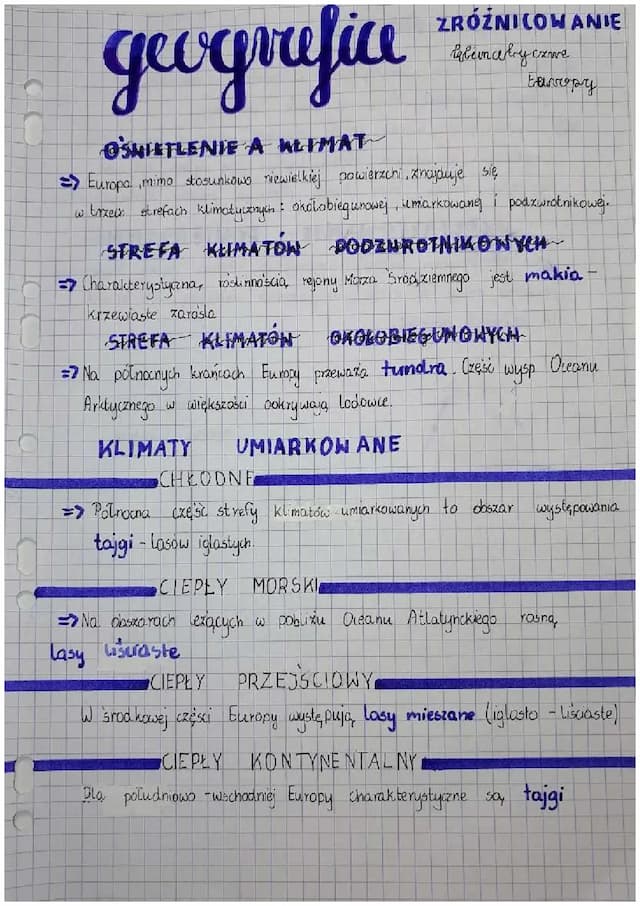 geografia
ZRÓŻNICOWANIE
klimatyczne
Europy
OŚWIETLENIE A KLIMAT
=> Europa, mimo stosunkowo niewielkiej powierzchni, znajduje się
w trzech strefach klimatycznych: okołobiegunowej, umiarkowanej i podzwrotnikowej.
STREFA KLIMATÓW PODZWROTNIKOWYCH
=> Charakterystyczną roślinnością rejony Morza Śródziemnego jest makia -
krzewiaste zarośla
STREFA KLIMATÓW OKOŁOBIEGUNOWYCH
=> Na północnych krańcach Europy przeważa tundra. Część wysp Oceanu
Arktycznego w większości pokrywają Lodowce.
KLIMATY UMIARKOWANE
CHŁODNE
=> Północna część strefy klimatów umiarkowanych to obszar występowania
tajgi - Lasów iglastych.
CIEPŁY MORSKI
=> Na obszarach leżących w pobliżu Oceanu Atlatynckiego rosną
lasy liściaste
CIEPŁY PRZEJŚCIOWY
W środkowej części Europy występują lasy mieszane (iglasto - Liściaste)
CIEPŁY KONTYNENTALNY
Dla południowo - wschodniej Europy charakterystyczne są tajgi